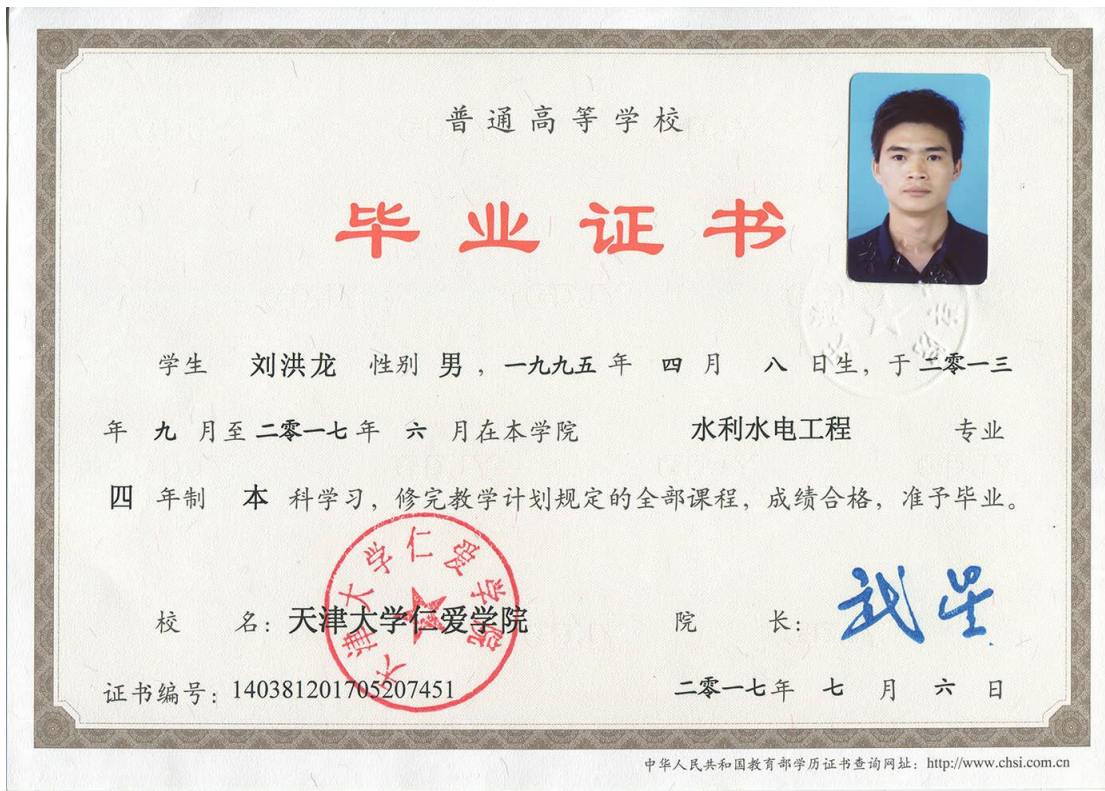 普通高等学校
毕业证书
学生 刘洪龙 性别 男，一九九五年 四 月 八 日生，于二零一三
年 九 月至二零一七年 六 月在本学院 水利水电工程 专业
四 年制 本 科学习，修完教学计划规定的全部课程，成绩合格，准予毕业。
天津大学仁爱学院
校 名：天津大学仁爱学院 院 长：武星
证书编号：140381201705207451 二零一七年 七 月 六 日
中华人民共和国教育部学历证书查询网址：http://www.chsi.com.cn